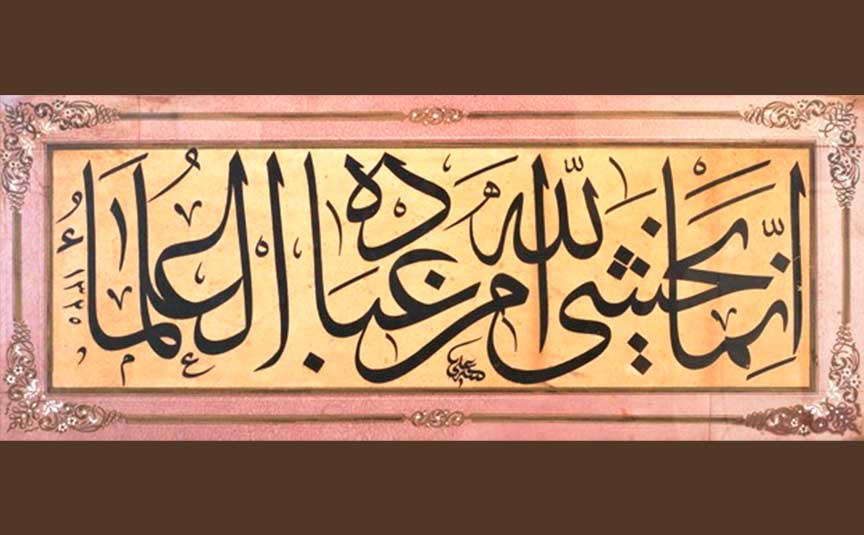 إنما يخشى الله من عباده العلماء
١٣٢٥